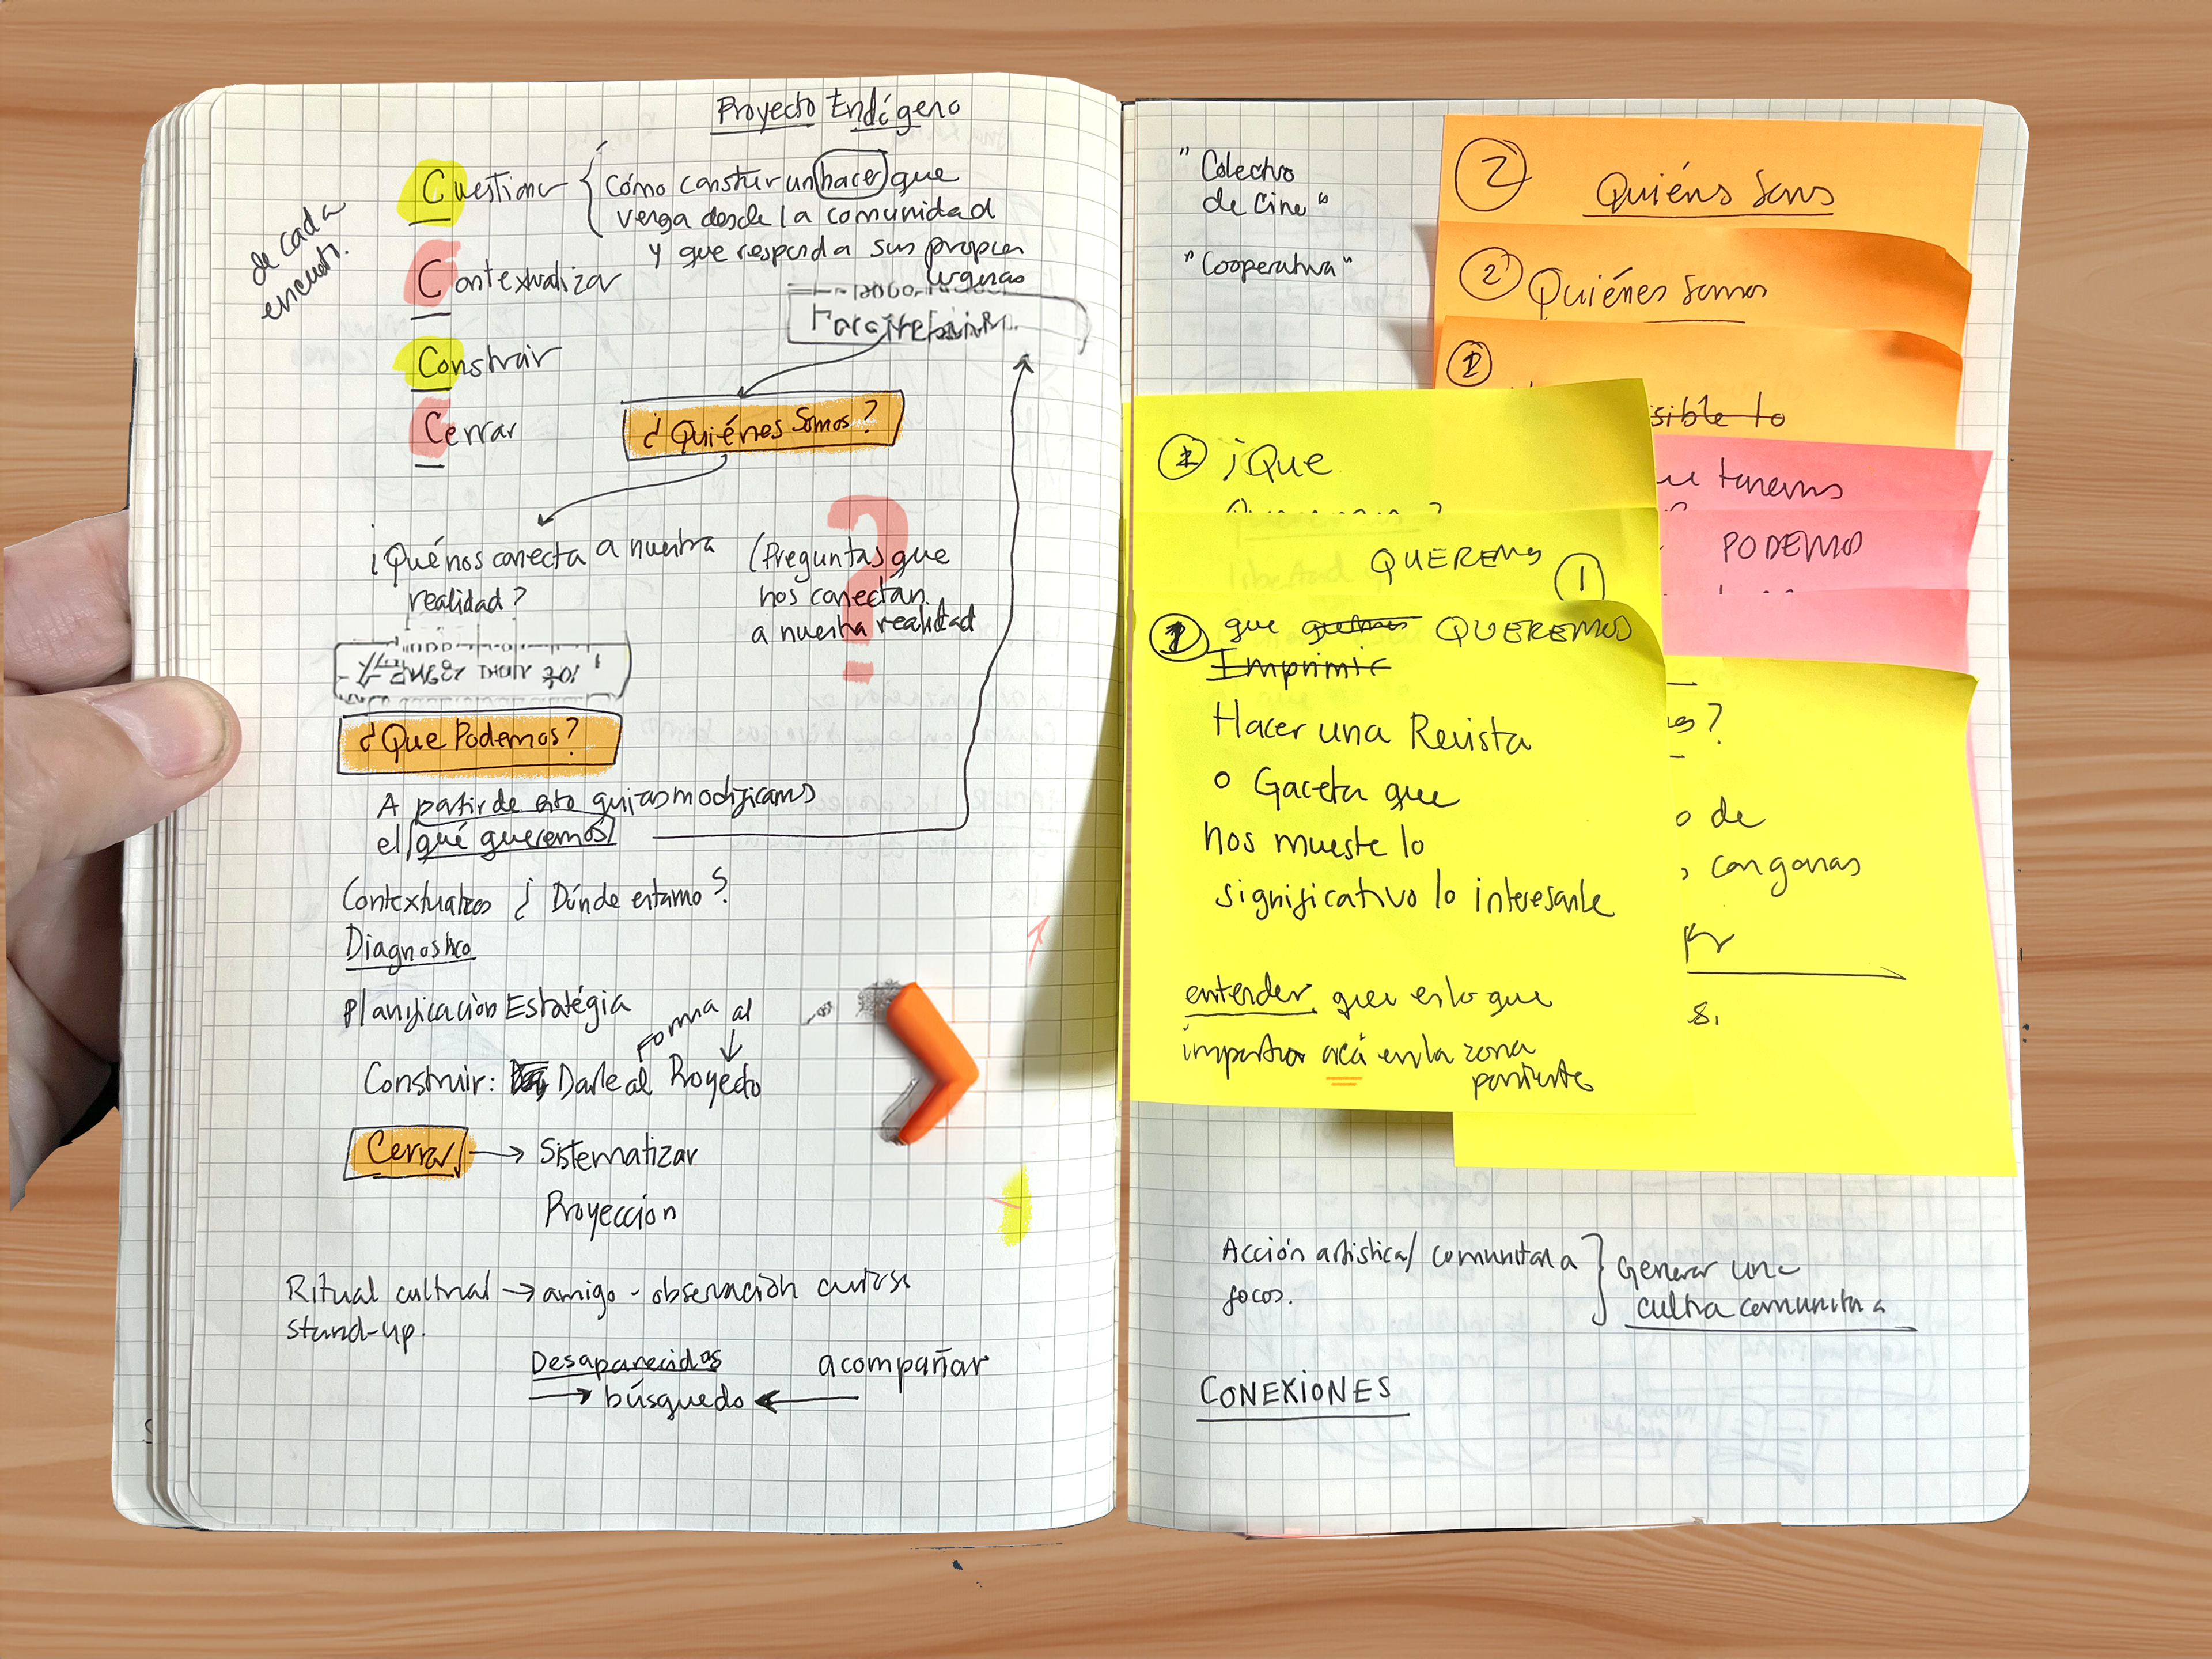 Proyecto Endógeno
de cada
encuentro.
Cuestionar { Cómo construir un hacer que
venga desde la comunidad
y que responda sus propias
urgencias
Contextualizar
Construir
Cerrar
¿Quiénes Somos?
¿Qué nos conecta a nuestra
realidad?
(Preguntas que
nos conectan
a nuestra realidad
?
¿Que Podemos?
A partir de esto quizas modificamos
el qué queremos
¿Dónde estamos?
Diagnostico
Planificacion Estratégia
forma al
Construir: Darle al Proyecto
Cerrar → Sistematizar
Proyección
Ritual cultural → amigo - observación
stand-up.
Desaparecidos acompañar
→ búsqueda ←
"Colectivo
de Cine"
"Cooperativa"
2 Quiéns Soms
2 Quiénes Somos
1
sible lo
tenems
PODEMO
1 ¡Que
QUEREMS 1
1 que QUEREMOS
Imprimir
Hacer una Revista
o Gaceta que
nos mueste lo
significativo lo interesante
entender que es lo que
importa acá en la zona
poniente
?
o de
, con ganas
s.
Acción artistica/ comunitaria } Generar una
focos. cultura comunitaria
CONEXIONES